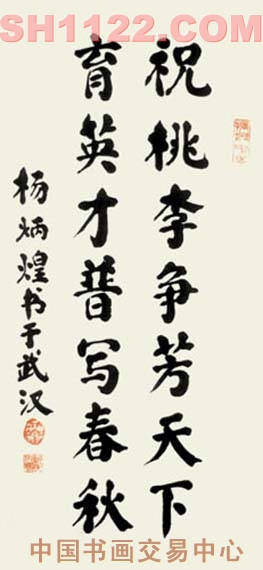 SH1122.COM
祝桃李争芳天下
育英才普写春秋
杨炳煌书于武汉
中国书画交易中心